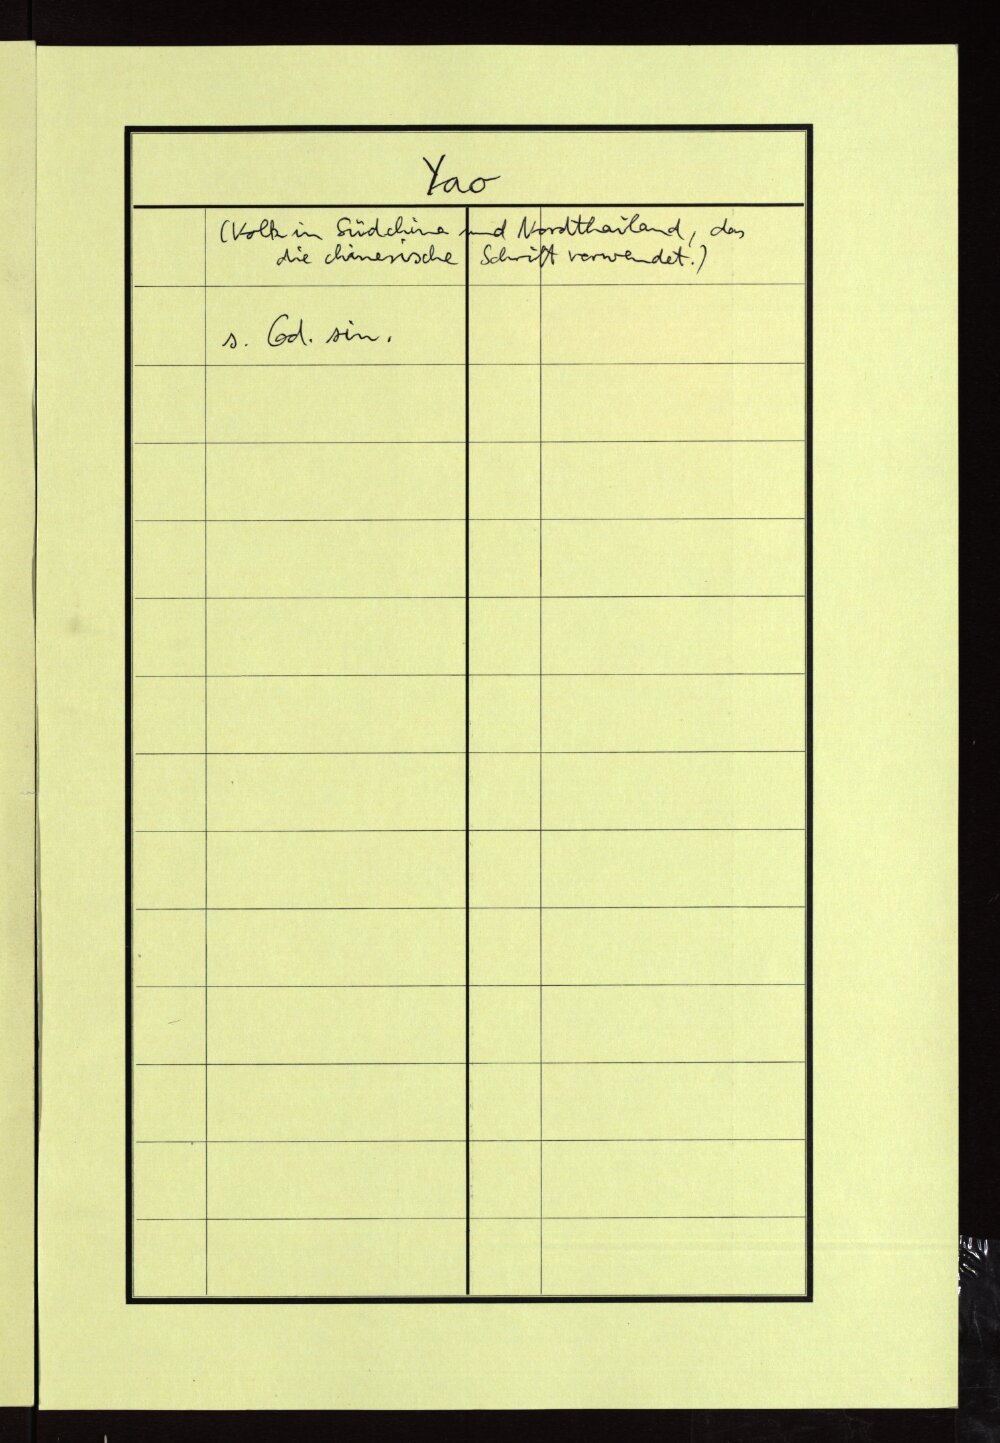 Yao
(Volk in Südchina und Nordthailand, das
die chinesische Schrift verwendet.)
s. Cod. sin.